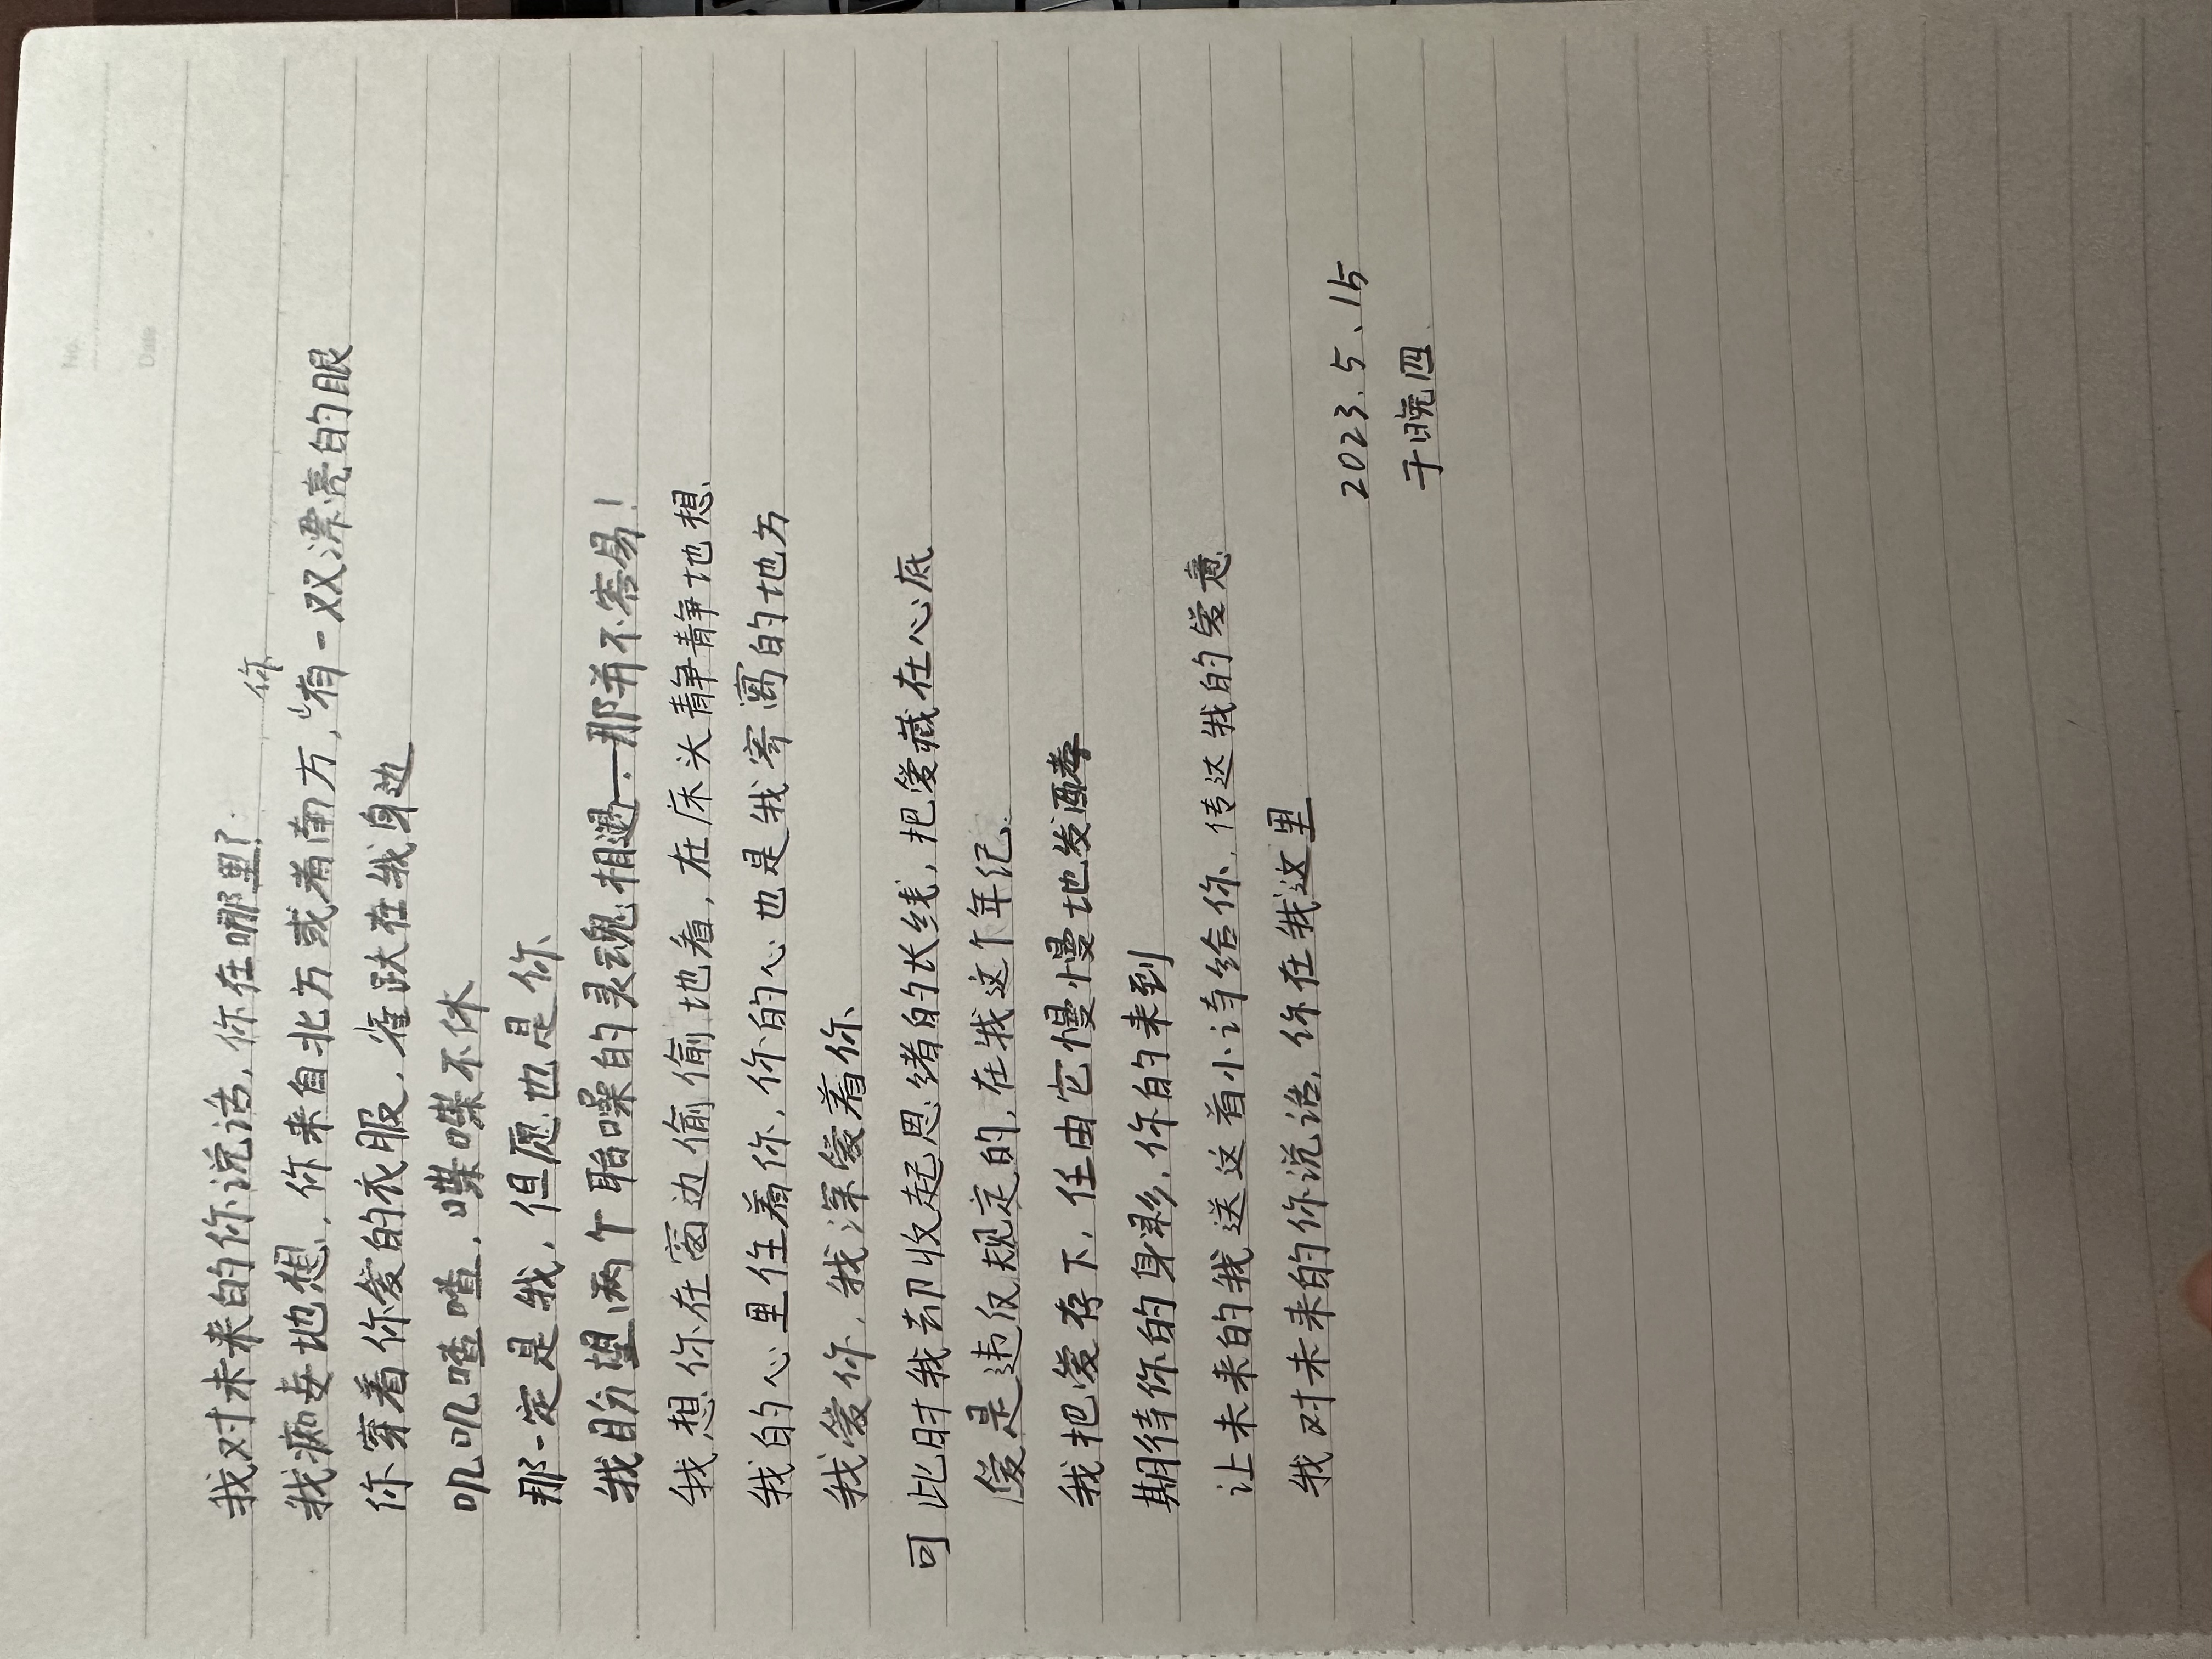 No.
Date
我对未来的你说话,你在哪里?
我痴妄地想,你来自北方或者南方,你有一双漂亮的眼
你穿着你爱的衣服,雀跃在我身边
叽叽喳喳,喋喋不休
那一定是我,但愿也是你
我盼望两个聒噪的灵魂相遇——那并不容易!
我想你在窗边偷偷地看,在床头静静地想
我的心里住着你,你的心也是我寄寓的地方
我爱你,我深爱着你
可此时我却收起思绪的长线,把爱藏在心底
爱是违反规定的,在我这个年纪
我把爱存下,任由它慢慢地发酵
期待你的身影,你的来到
让未来的我送这首小诗给你,传达我的爱意
我对未来的你说话,你在我这里
2023.5.15
于晚四